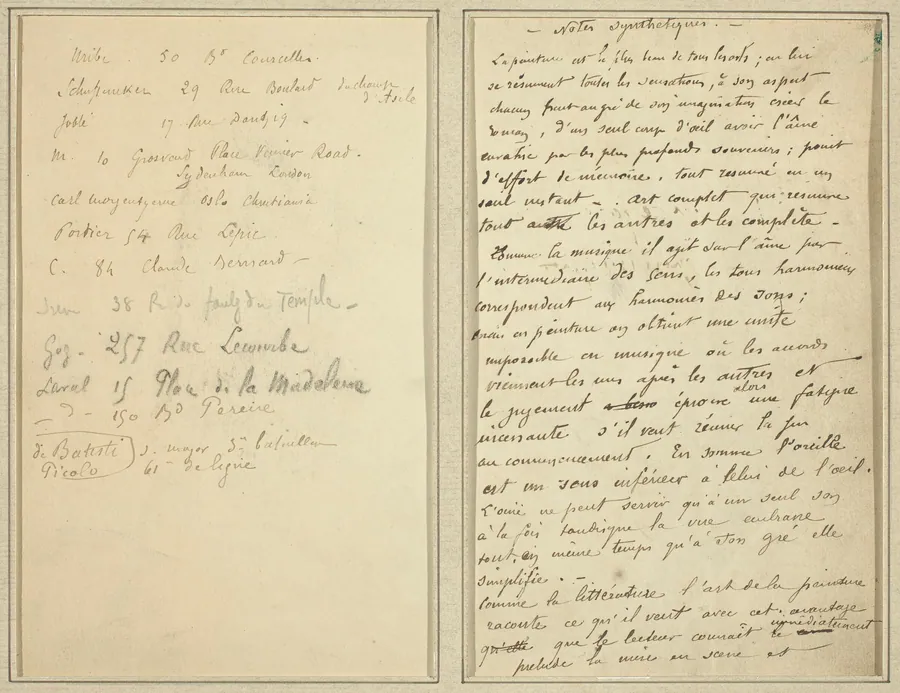 Uribe. 50 Bd Courcelles.
Schuffneker 29 Rue Boulard du champ
d'Asile
Joblé 17 Rue Dantzig -
M. 10 Grosvenor Place Venner Road.
Sydenham London
Carl Morgenstjerne Oslo Christiania
Portier 54 Rue Lepic
C. 84 Claude Bernard -
38 R. du faubg du Temple -
257 Rue Lecourbe
Laval 15 Place de la Madeleine
- 190 Bd Pereire
de Batisti s. major 3me bataillon
Picolo 61me de ligne
- Notes Synthétiques. -
La peinture est le plus beau de tous les arts ; en lui
se résument toutes les sensations, à son aspect
chacun peut au gré de son imagination créer le
roman, d'un seul coup d'œil avoir l'âme
envahie par les plus profonds souvenirs ; point
d'effort de mémoire, tout résumé en un
seul instant -. Art complet qui résume
tout les autres et les complète -
Comme la musique il agit sur l'âme par
l'intermédiaire des sens, les tons harmonieux
correspondent aux harmonies des sons ;
mais en peinture on obtient une unité
impossible en musique où les accords
viennent les uns après les autres et
le jugement éprouve alors une fatigue
incessante s'il veut réunir la fin
au commencement. En somme l'oreille
est un sens inférieur à celui de l'œil.
L'ouïe ne peut servir qu'à un seul son
à la fois tandisque la vue embrasse
tout, en même temps qu'à son gré elle
simplifie. -
Comme la littérature l'art de la peinture
raconte ce qu'il veut avec cet avantage
que le lecteur connaît immédiatement le
prélude la mise en scène et